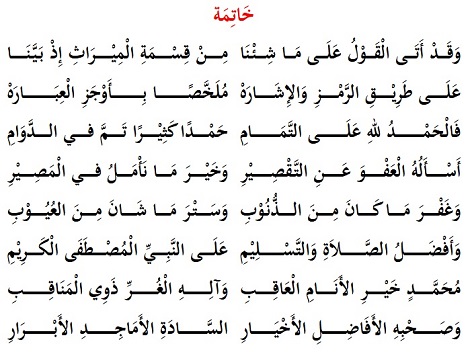 خَاتِمَة
وَقَدْ أَتَى الْقَوْلُ عَلَى مَا شِئْنَا مِنْ قِسْمَةِ الْمِيْرَاثِ إِذْ بَيَّنَا
عَلَى طَرِيْقِ الرَّمْزِ وَالإِشَارَهْ مُلَخَّصًا بِأَوْجَزِ الْعِبَارَهْ
فَالْحَمْدُ لِلهِ عَلَى التَّمَامِ حَمْدًا كَثِيْرًا تَمَّ في الدَّوَامِ
أَسْأَلُهُ الْعَفْوَ عَنِ التَّقْصِيْرِ وَخَيْرَ مَا نَأْمَلُ في الْمَصِيْرِ
وَغَفْرَ مَا كَانَ مِنَ الذُّنُوْبِ وَسَتْرَ مَا شَانَ مِنَ الْعُيُوْبِ
وَأَفْضَلُ الصَّلاَةِ وَالتَّسْلِيْمِ عَلَى النَّبِيِّ الْمُصْطَفَى الْكَرِيْمِ
مُحَمَّدٍ خَيْرِ الأَنَامِ الْعَاقِبِ وَآلِهِ الْغُرِّ ذَوِي الْمَنَاقِبِ
وَصَحْبِهِ الأَفَاضِلِ الأَخْيَارِ السَّادَةِ الأَمَاجِدِ الأَبْرَارِ